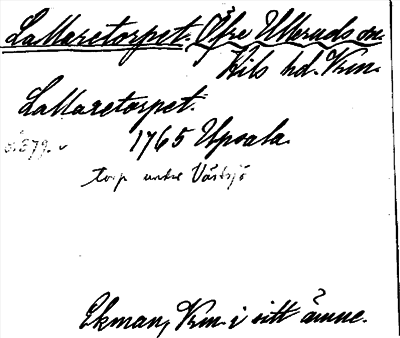 Lallaretorpet. Öfre Ulleruds sn.
Kils hd. Vrm.
Lallaretorpet.
s. 279. 1765 Upsala.
torp under Västsjö
Ekman, Vrm. i sitt ämne.